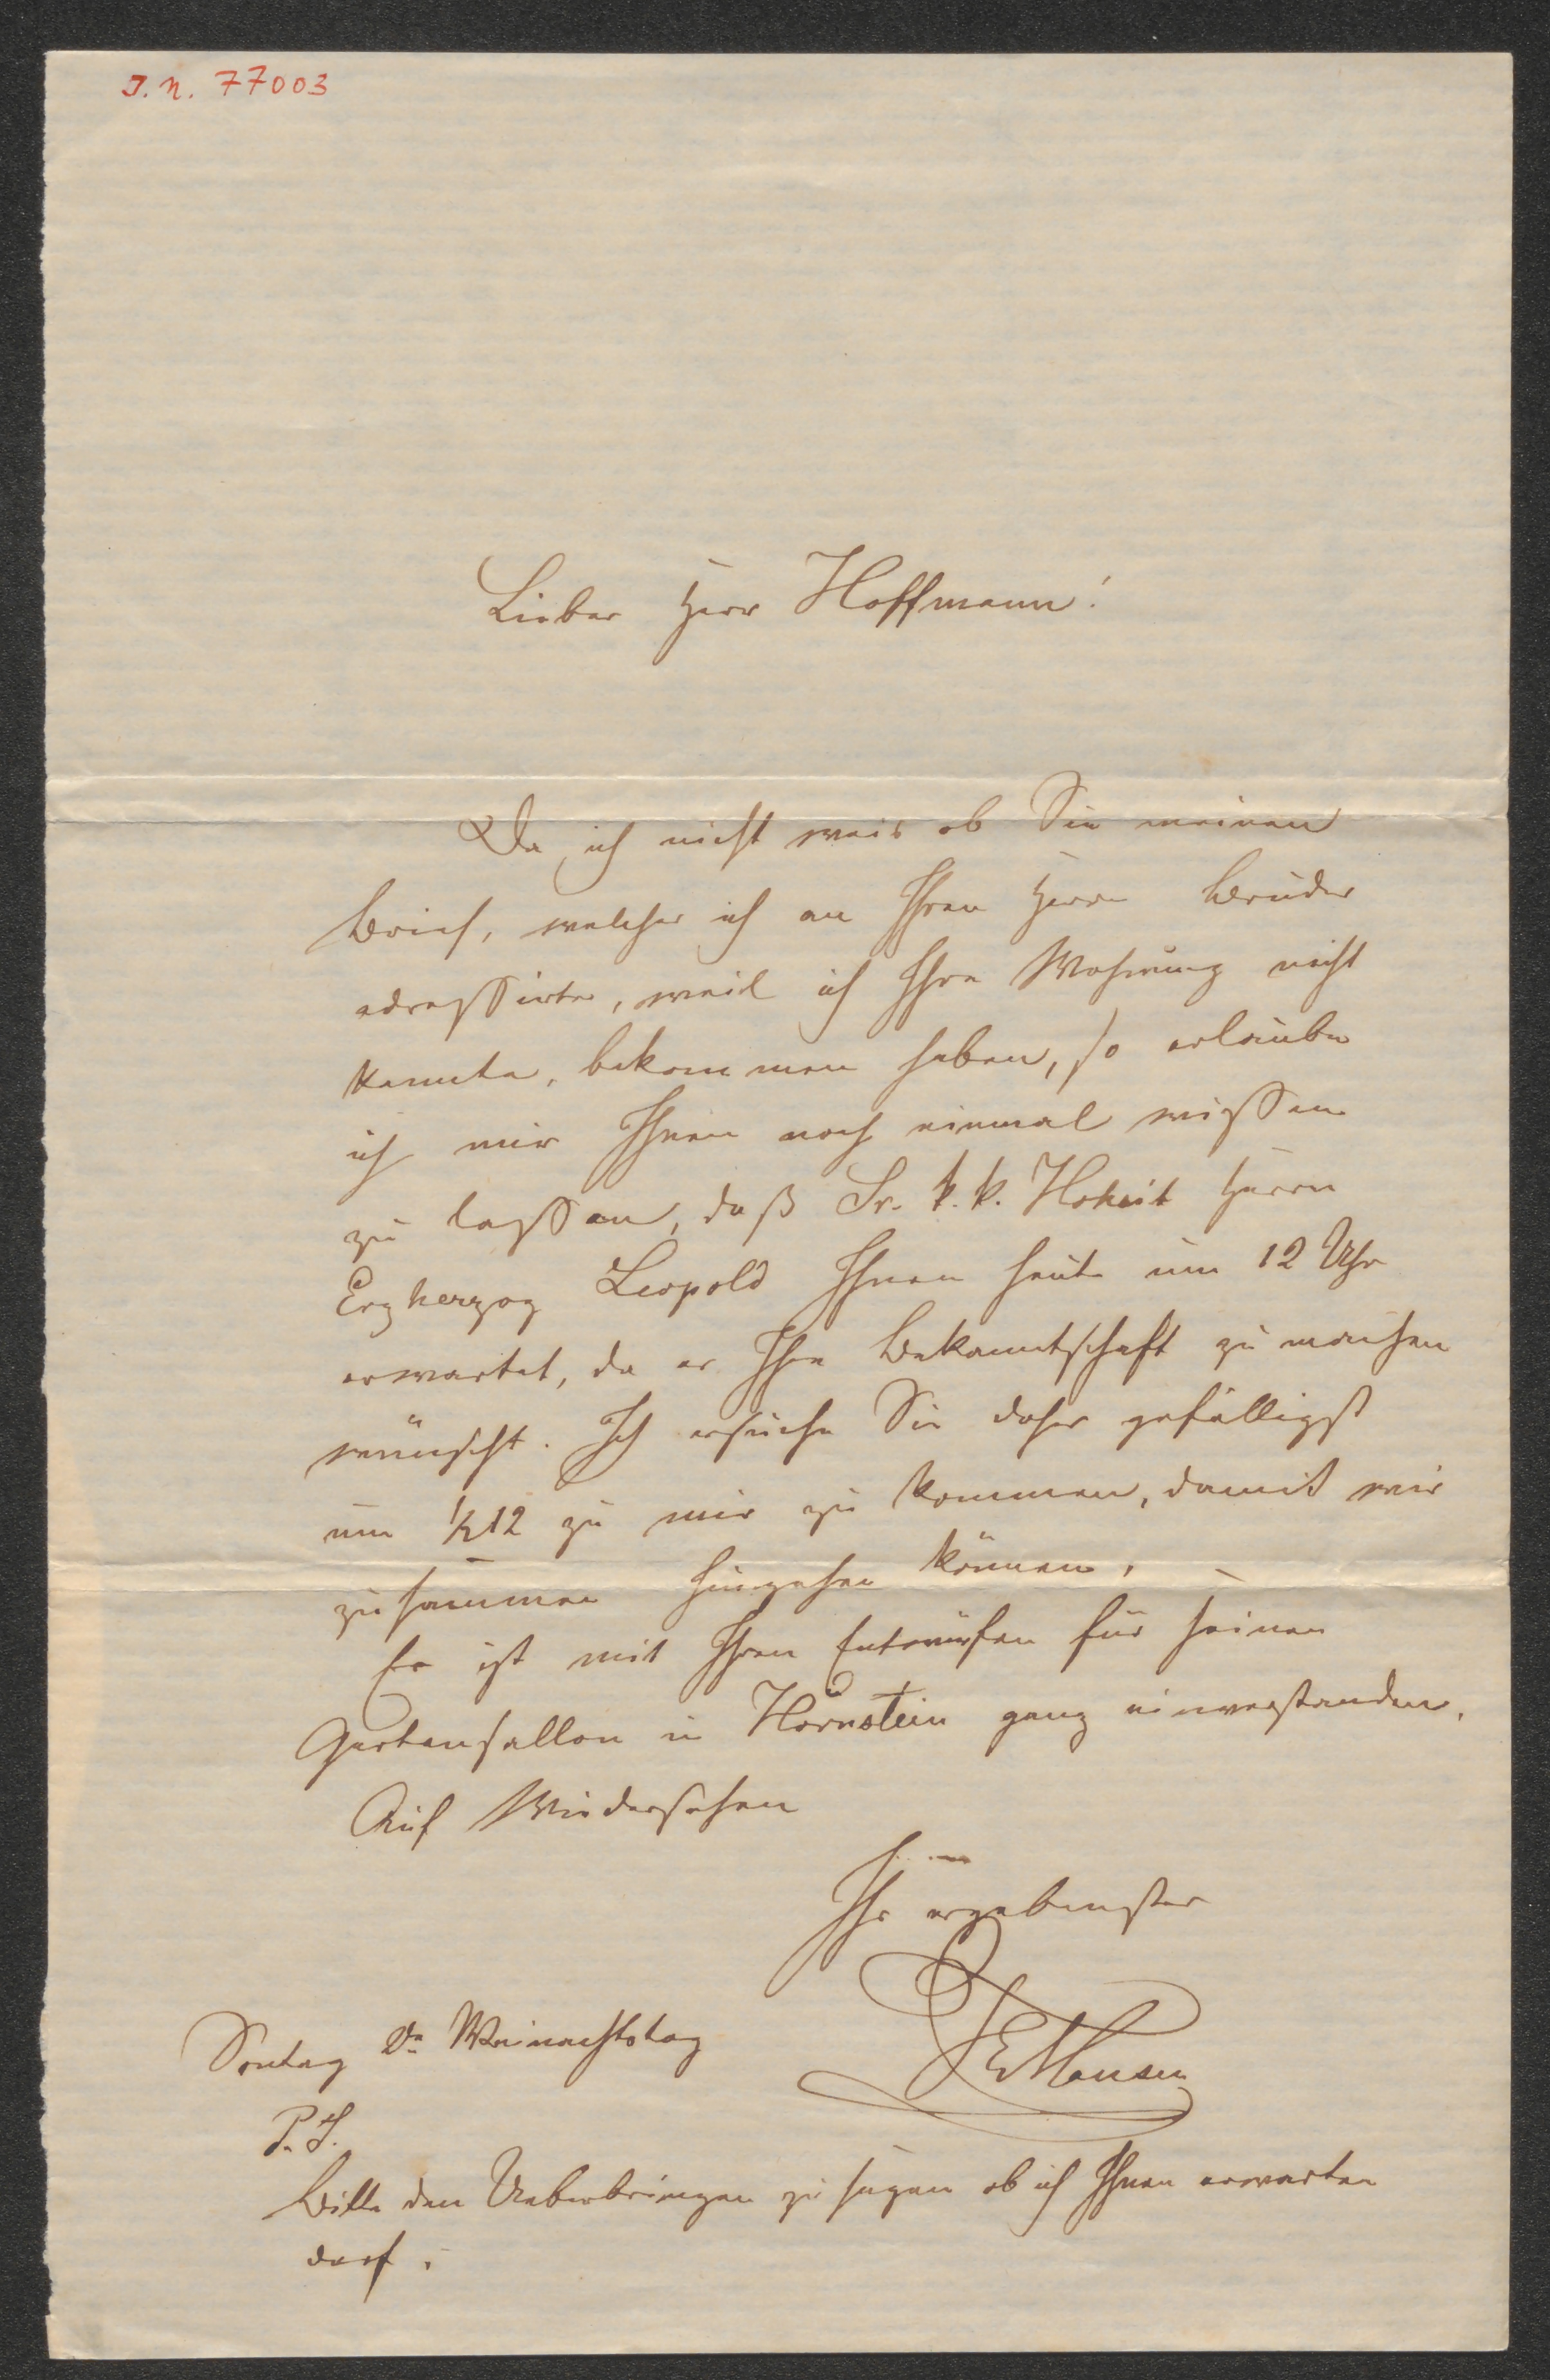 J. N. 77003
Lieber Herr Hoffmann!
Da ich nicht weis ob Sie meinen
Brief, welcher ich an Ihren Herrn Bruder
adressirte, weil ich Ihre Wohnung nicht
kannte, bekommen haben, so erlaube
ich mir Ihnen noch einmal wissen
zu lassen, daß Sr. k. k. Hoheit Herrn
Erzherzog Leopold Ihnen heute um 12 Uhr
erwartet, da er Ihre Bekanntschaft zu machen
wünscht. Ich ersuche Sie daher gefälligst
um ½12 zu mir zu kommen, damit wir
zusammen hingehen können. –
Er ist mit Ihren Entwürfen für seinen
Gartensallon in Hornstein ganz einverstanden.
Auf Wiedersehen
Ihr ergebenster
Hansen
Sontag Weinachtstag
P. S.
Bitte den Ueberbringen zu sagen ob ich Ihnen erwarten
darf.